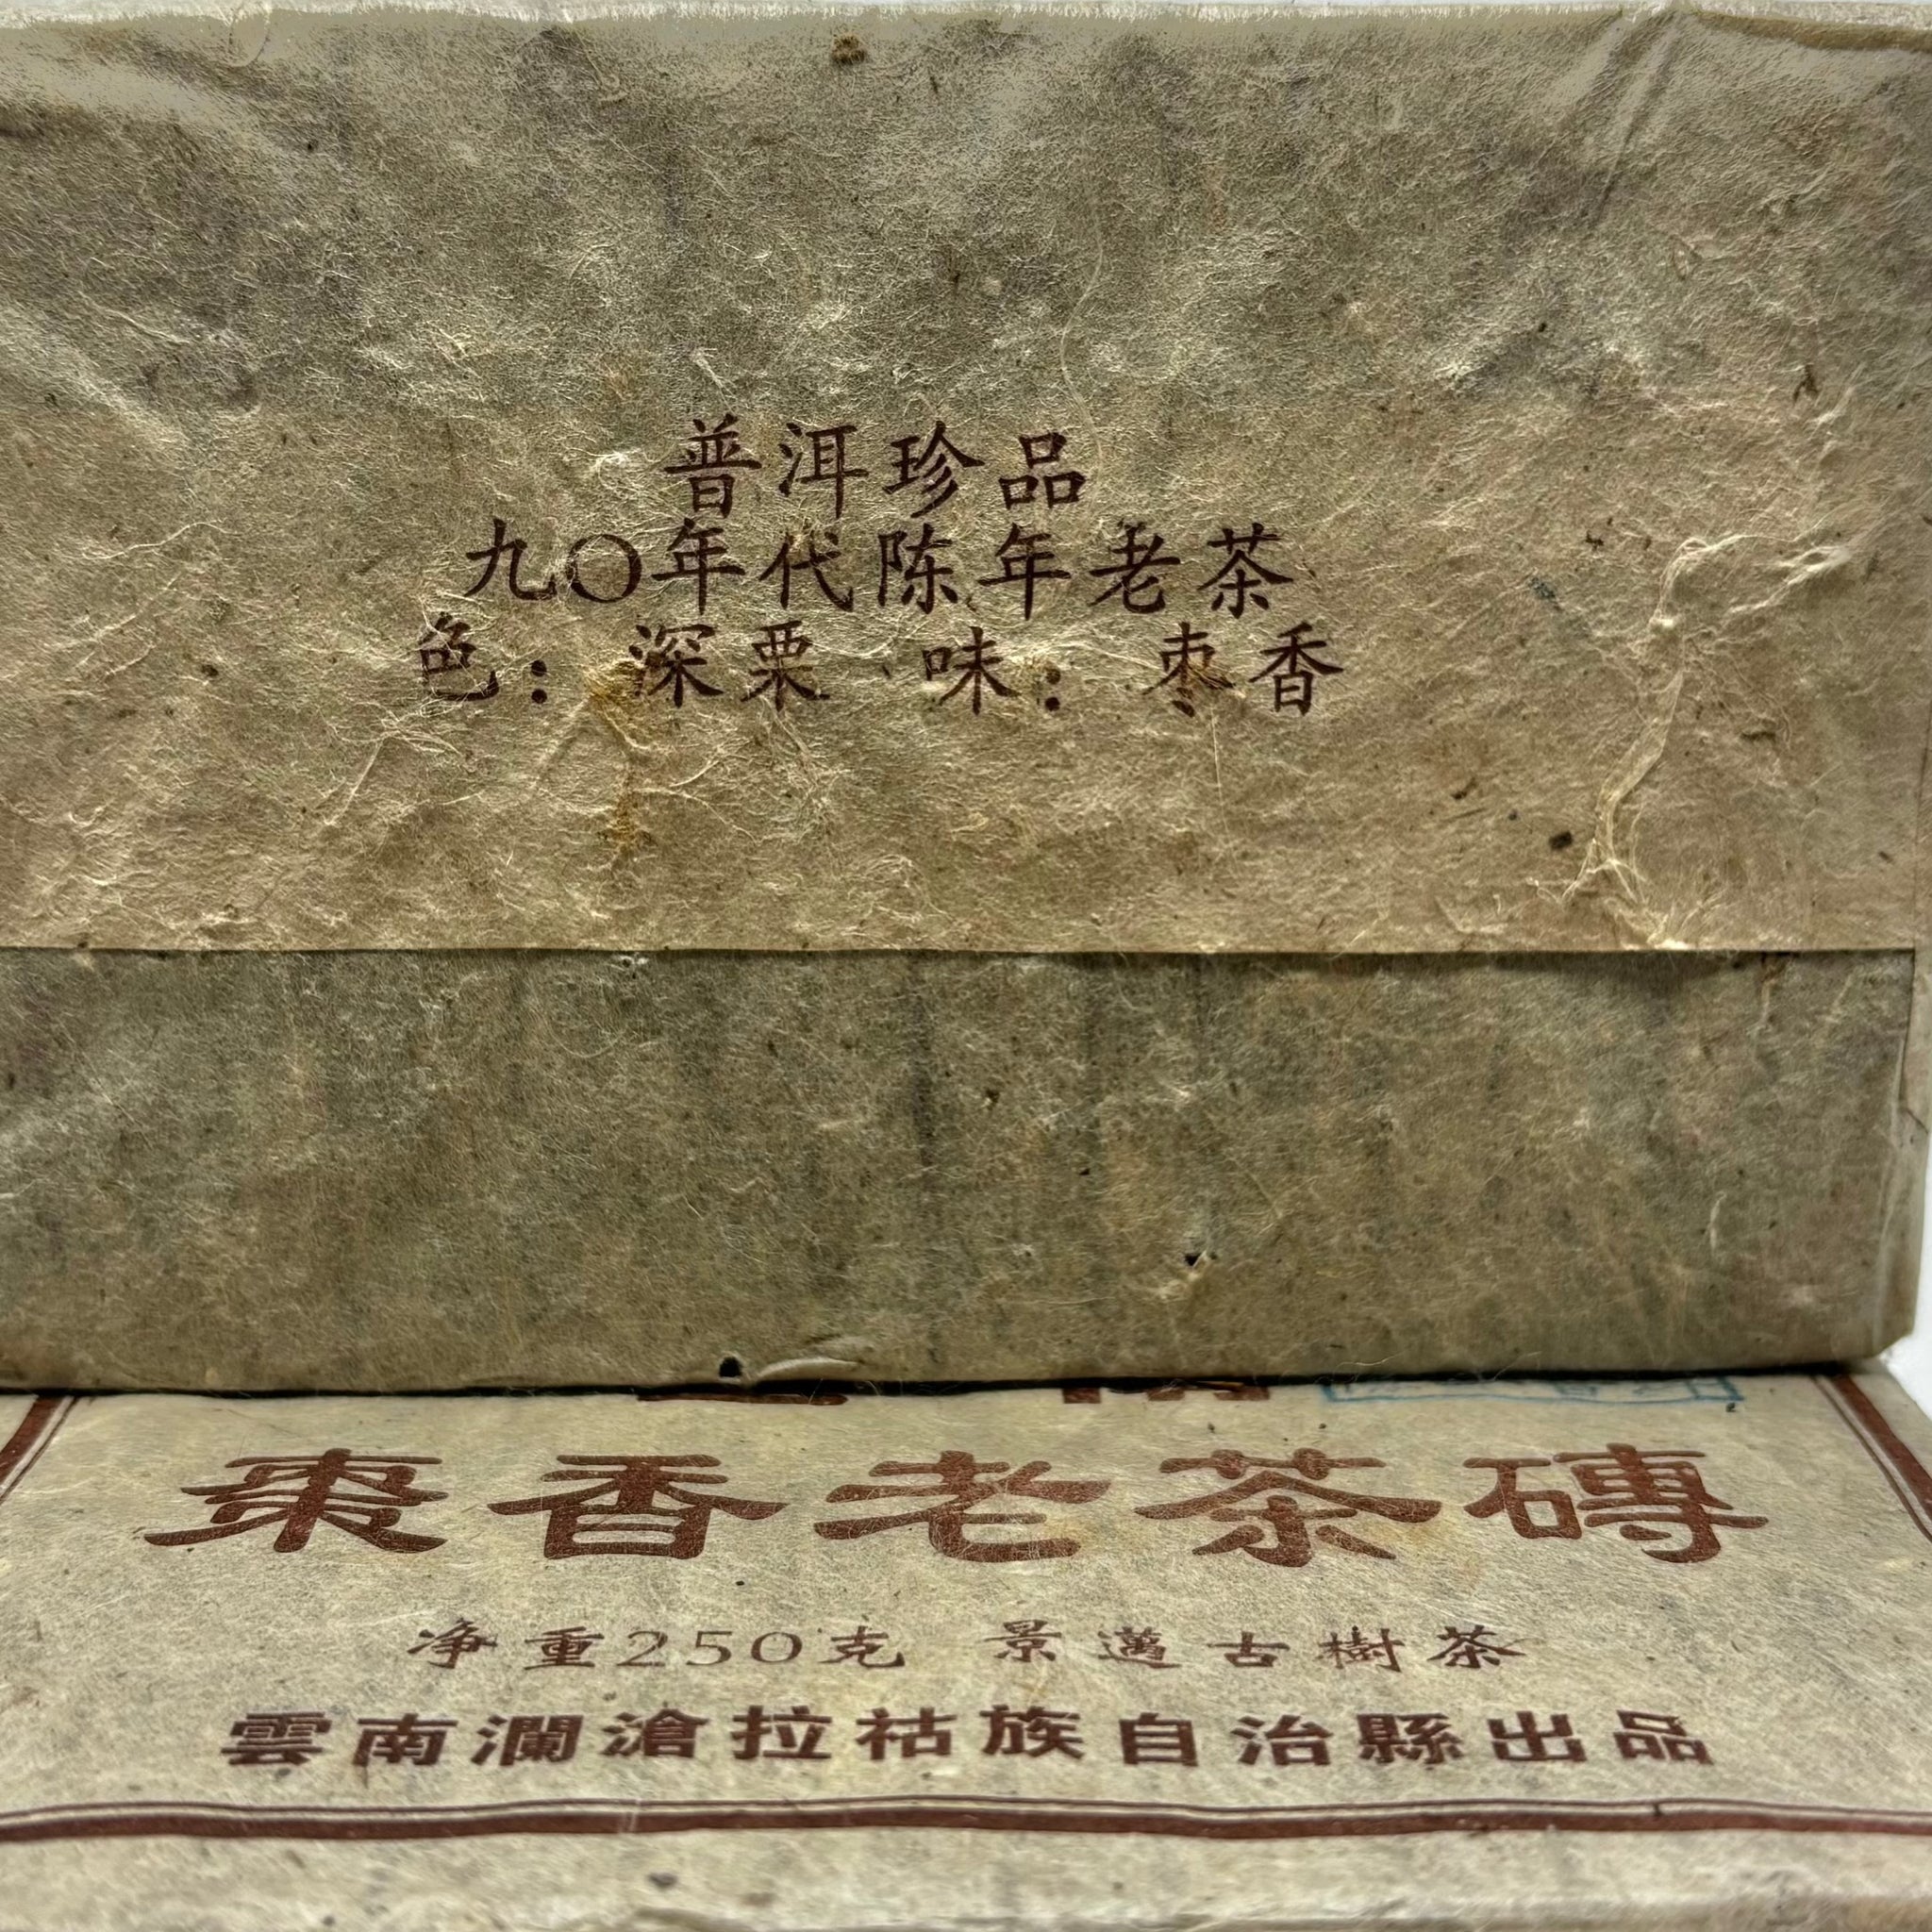 普洱珍品
九〇年代陈年老茶
色：深栗 味：枣香
棗香老茶磚
净重250克 景邁古樹茶
雲南瀾滄拉祜族自治縣出品